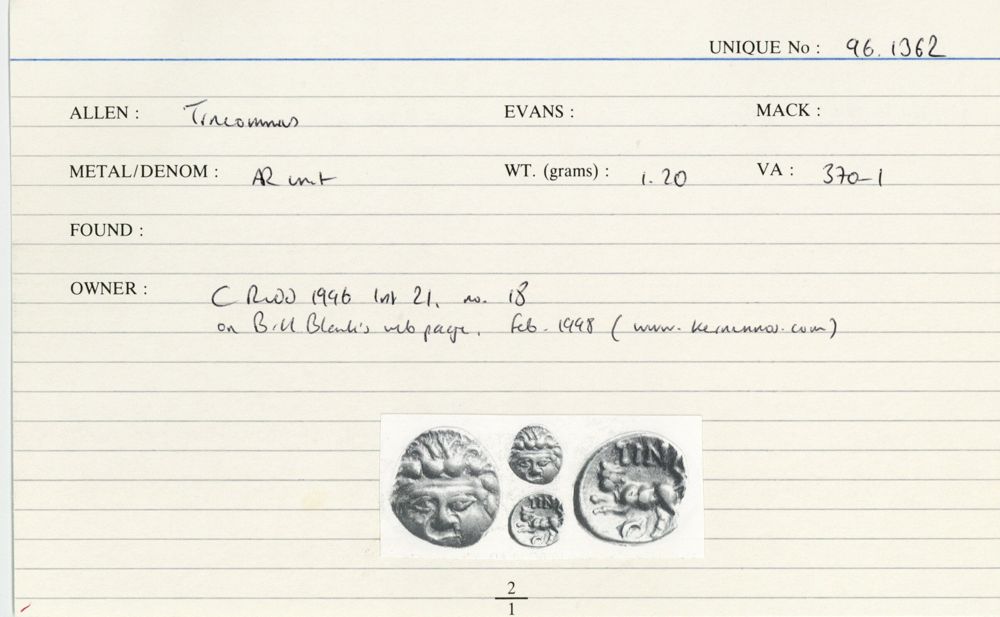 UNIQUE No : 96.1362
ALLEN : Tincommus EVANS : MACK :
METAL/DENOM : AR unit WT. (grams) : 1.20 VA : 370-1
FOUND :
OWNER : C Rudd 1996 list 21, no. 18
on Bill Blank's web page, Feb. 1998 (www.kernunnos.com)
TIN
TIN
2
1